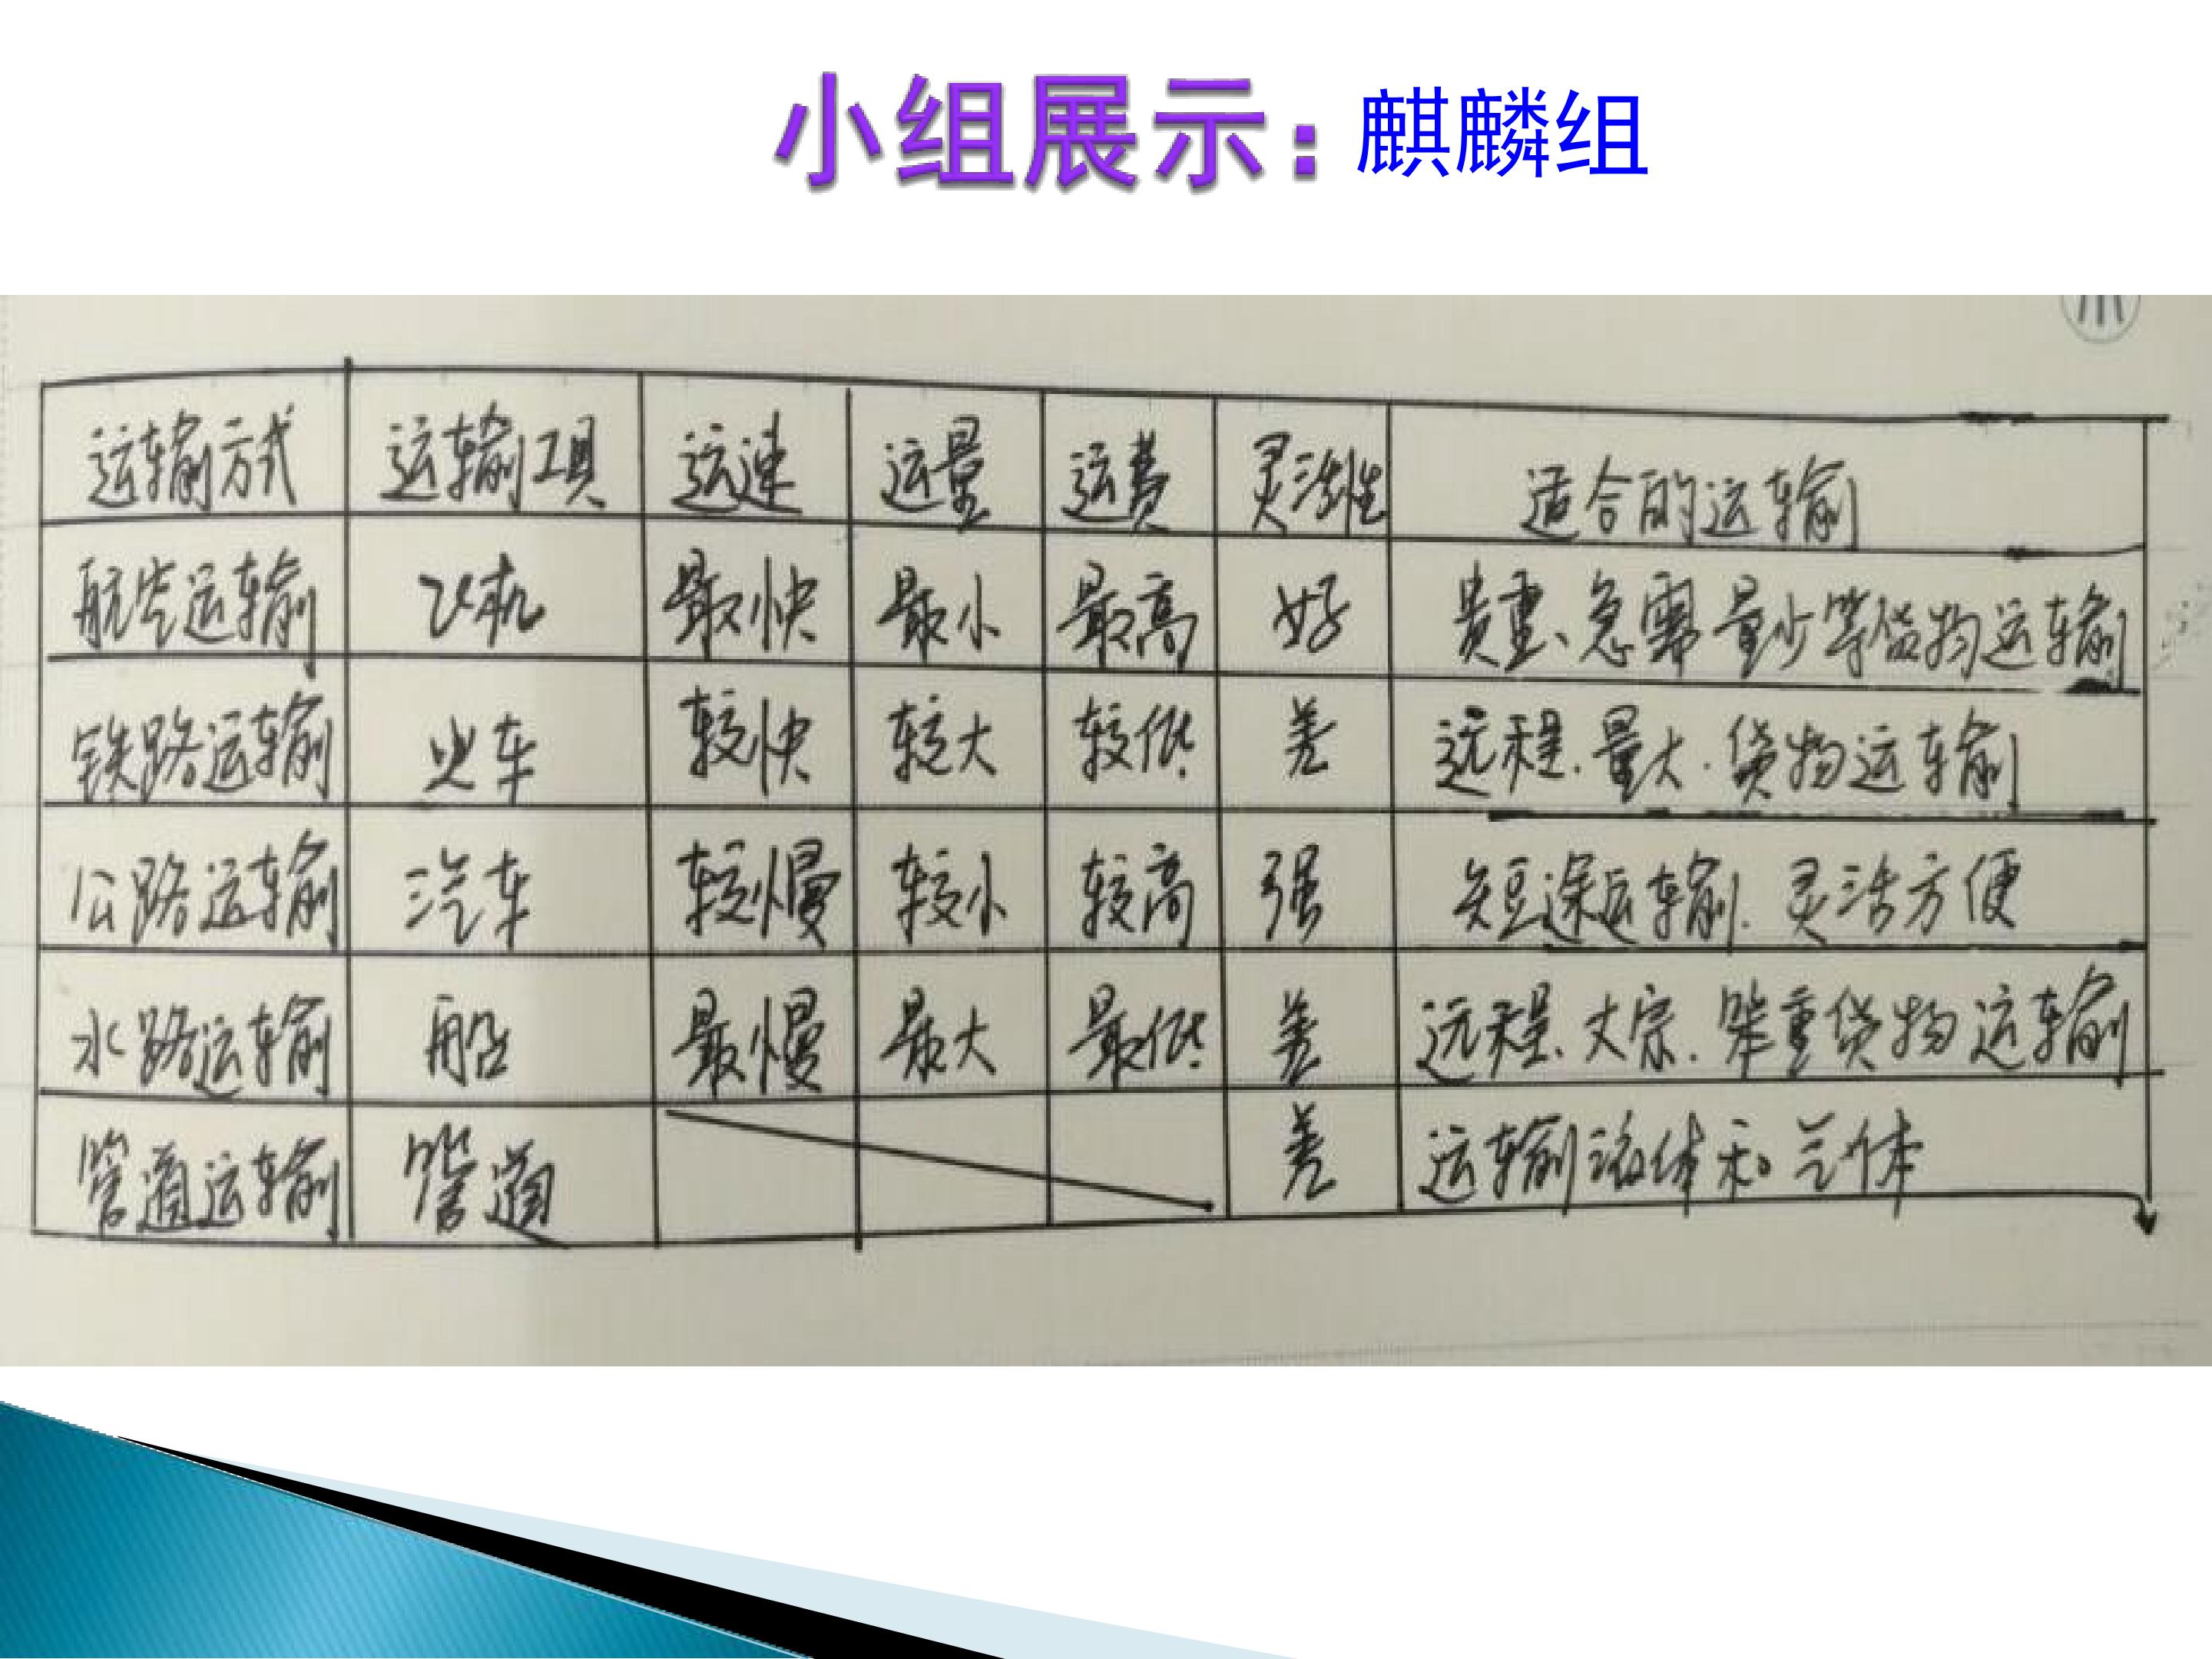 小组展示：麒麟组
运输方式 运输工具 运速 运量 运费 灵活性 适合的运输
航空运输 飞机 最快 最小 最高 好 贵重、急需 量少等货物运输
铁路运输 火车 较快 较大 较低 差 远程.量大.货物运输
公路运输 汽车 较慢 较小 较高 强 短途运输.灵活方便
水路运输 船 最慢 最大 最低 差 远程、大宗.笨重货物运输
管道运输 管道 差 运输液体和气体